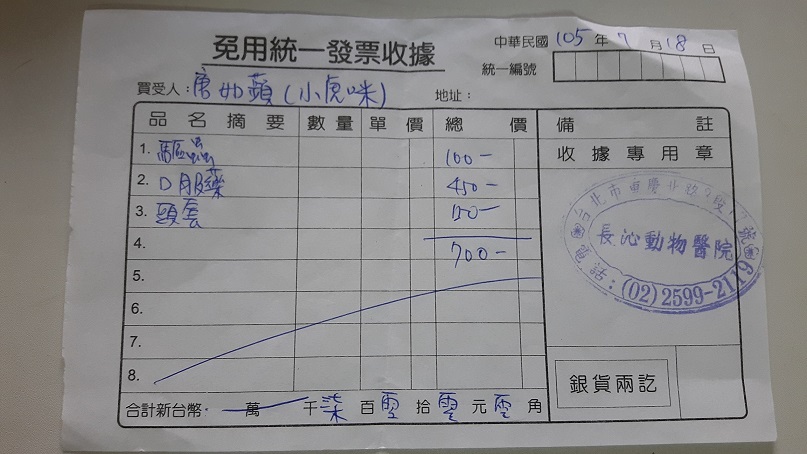 免用統一發票收據
中華民國 105 年 7 月 18 日
統一編號
買受人：唐如蘋(小虎咪) 地址：
品名摘要 數量 單價 總價 備註
1. 驅蟲 100-
2. 口服藥 450-
3. 頭套 150-
4. 700-
5.
6.
7.
8.
合計新台幣： 萬 千 柒 百 零 拾 零 元 零 角
收據專用章
台北市重慶北路
長沁動物醫院
電話：(02)2599-2119
銀貨兩訖